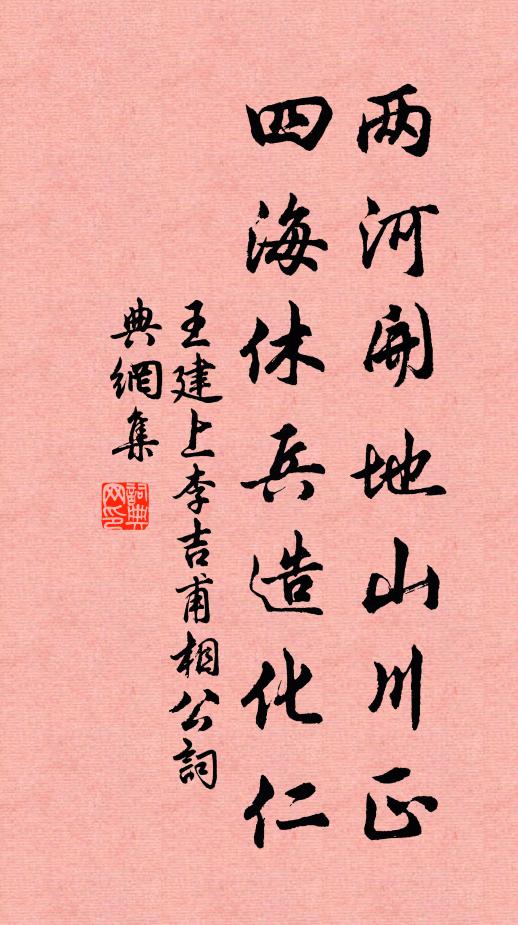 两河開地山川正
四海休兵造化仁
王建上李吉甫相公詞
典網集
詞典网印